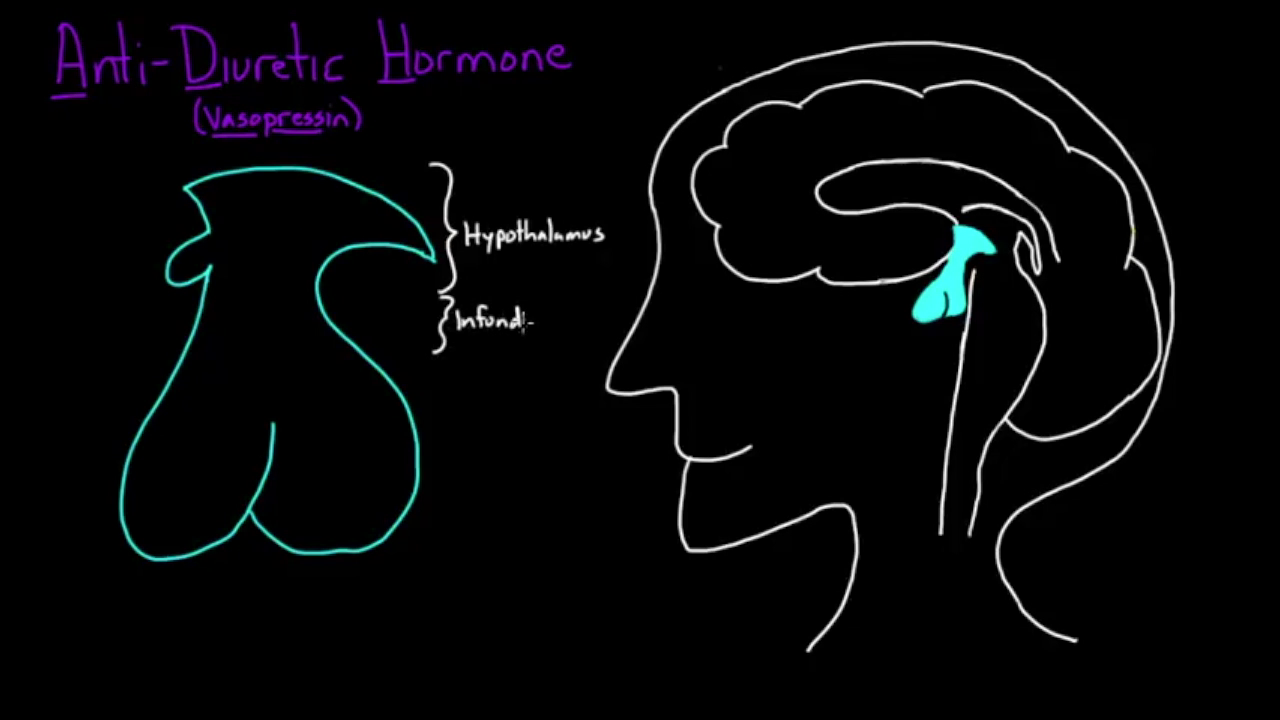 Anti-Diuretic Hormone
(Vasopressin)
Hypothalamus
Infundi-